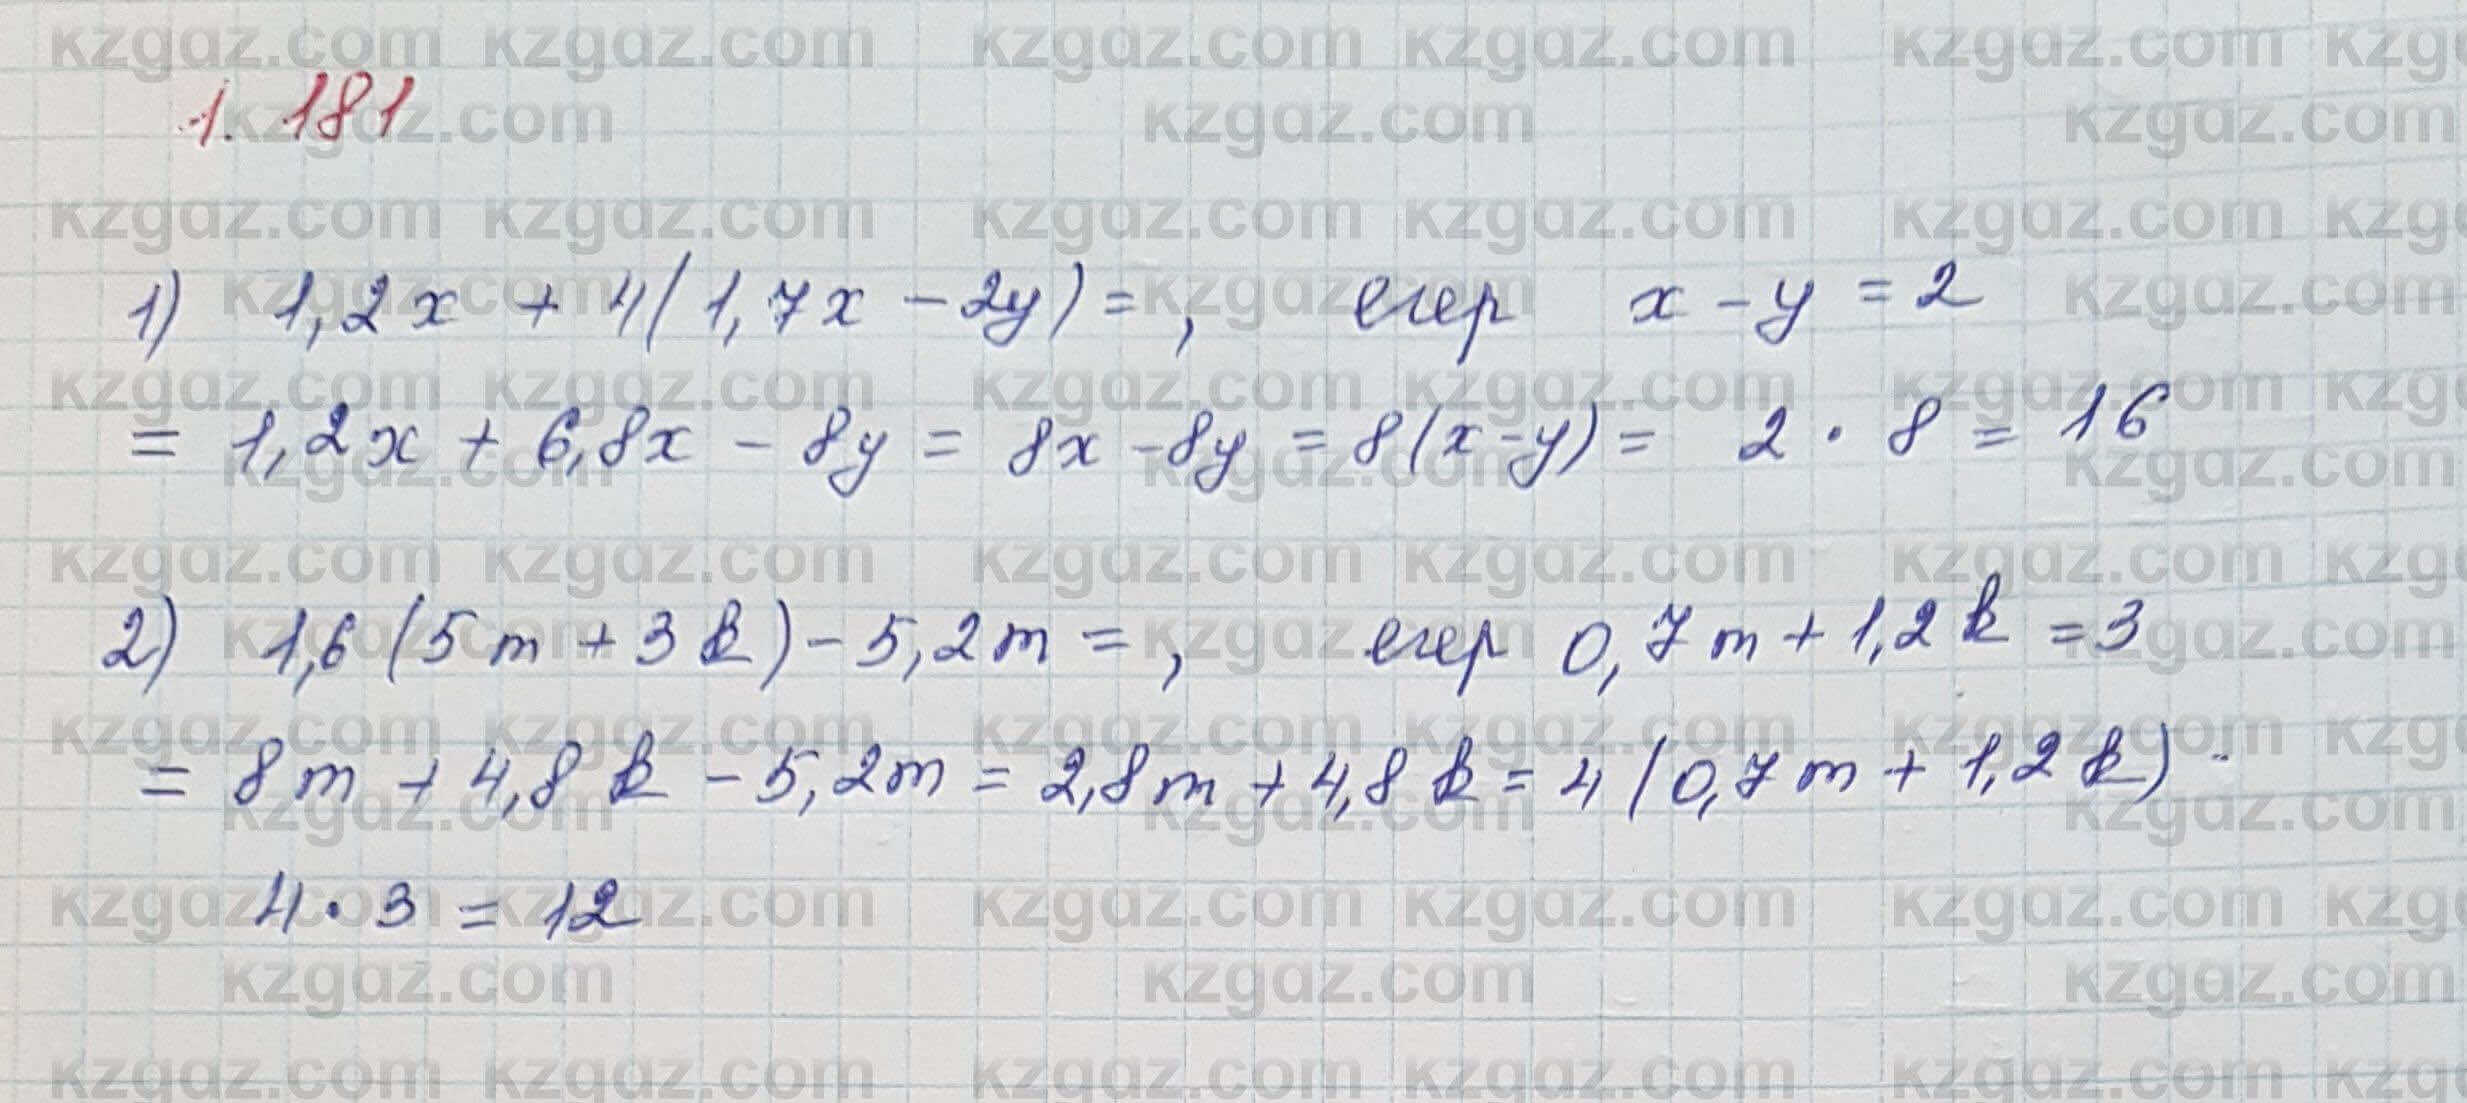 1.181
1) 1,2x + 4(1,7x - 2y) = , егер x - y = 2
= 1,2x + 6,8x - 8y = 8x - 8y = 8(x-y) = 2 · 8 = 16
2) 1,6 (5m + 3k) - 5,2m = , егер 0,7m + 1,2k = 3
= 8m + 4,8k - 5,2m = 2,8m + 4,8k = 4(0,7m + 1,2k) =
4 · 3 = 12
kzgaz.com